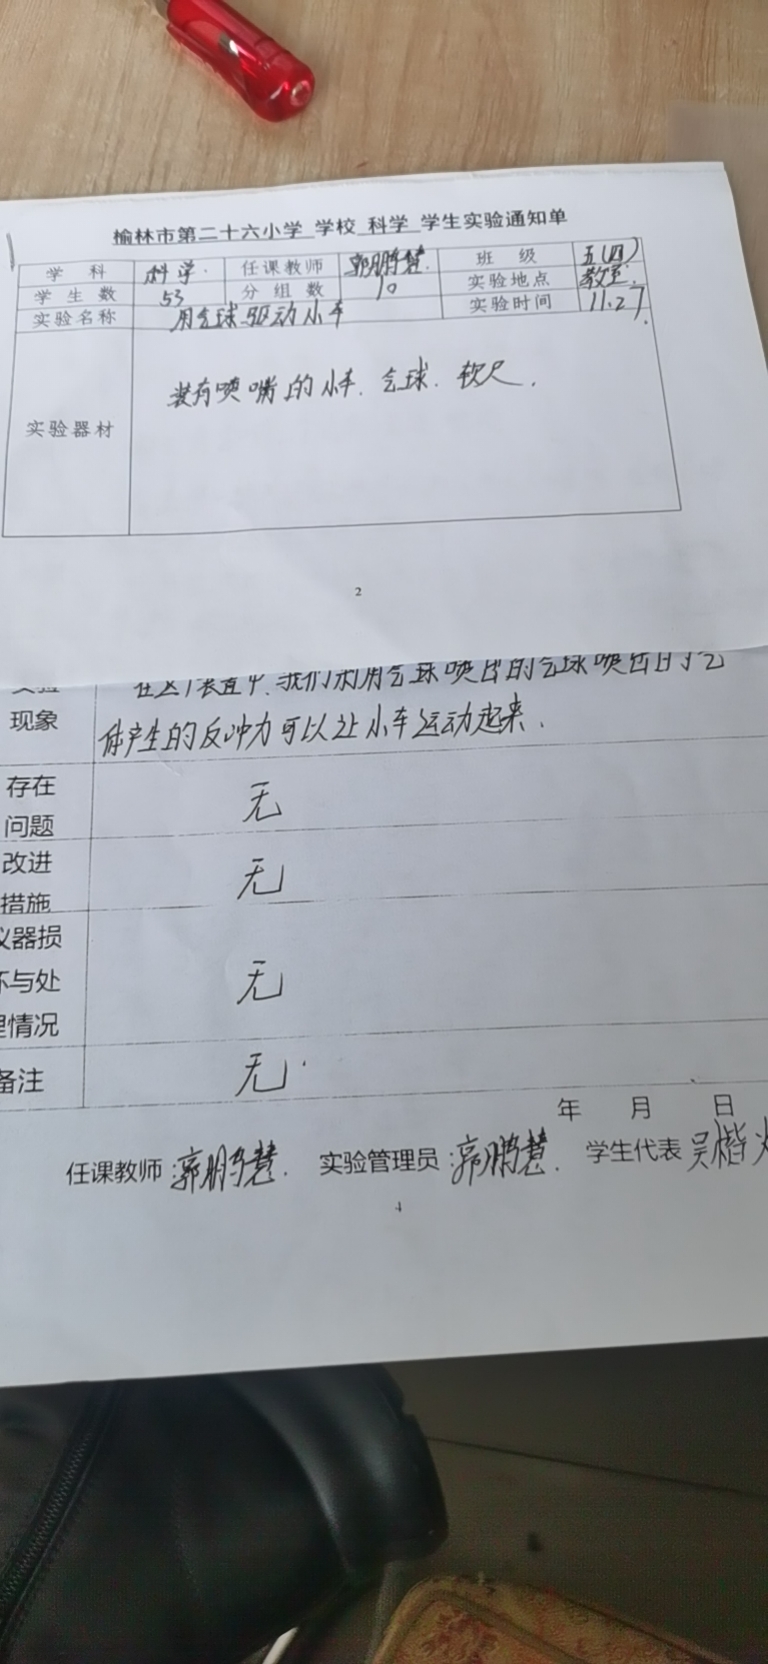 榆林市第二十六小学 学校 科学 学生实验通知单
学科 科学 任课教师 郭鹏慧 班级 五(四)
学生数 53 分组数 10 实验地点 教室
实验名称 用气球驱动小车 实验时间 11.27
实验器材 装有喷嘴的小车. 气球. 软尺.
2
在这个装置中,我们利用气球喷出的气球喷出的气
现象 体产生的反冲力可以让小车运动起来.
存在
问题 无
改进
措施 无
仪器损
坏与处 无
理情况
备注 无.
年 月 日
任课教师:郭鹏慧. 实验管理员:郭鹏慧. 学生代表 吴楷
4